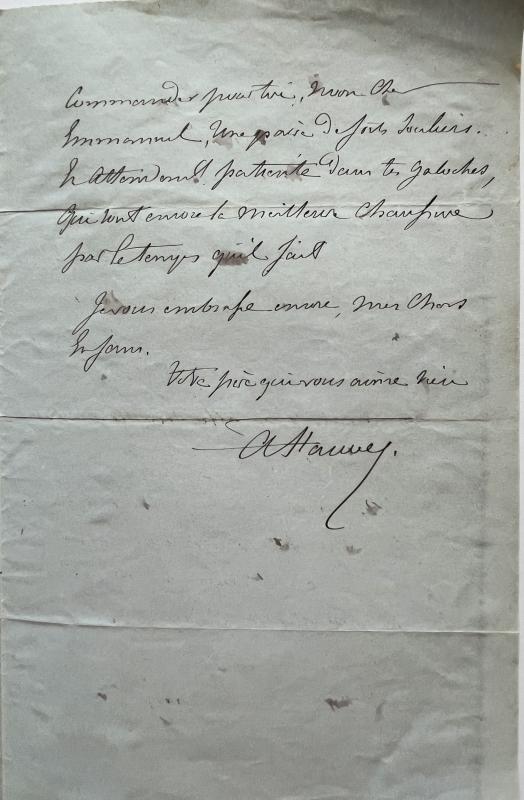 Commander pour toi, mon cher
Emmanuel, une paire de forts souliers.
En attendant patiente dans tes galoches,
qui sont encore la meilleure chaussure
par le temps qu'il fait
Je vous embrasse encore, mes chers
Enfans.
Votre père qui vous aime bien